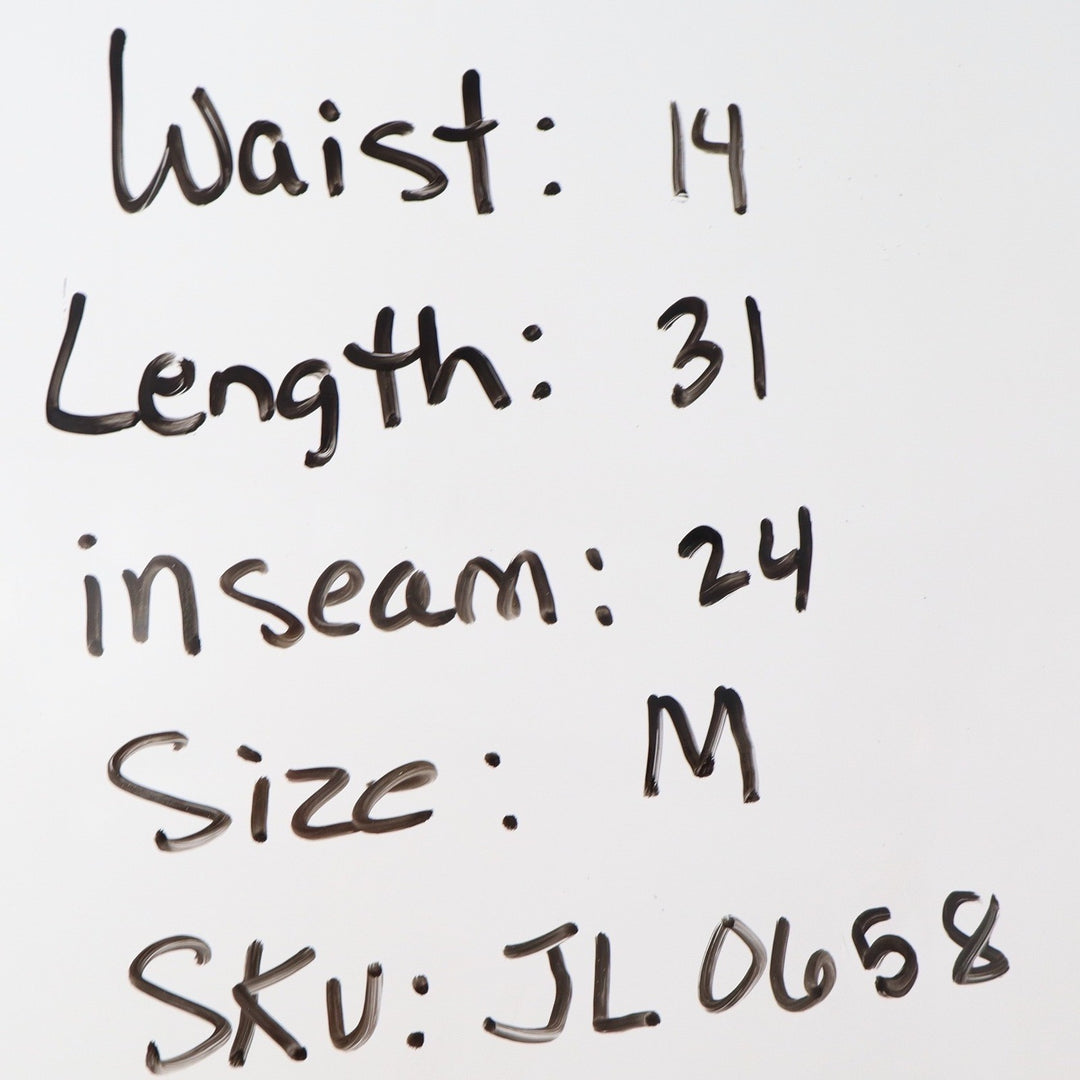 Waist: 14
Length: 31
inseam: 24
Size: M
SKU: JL0658